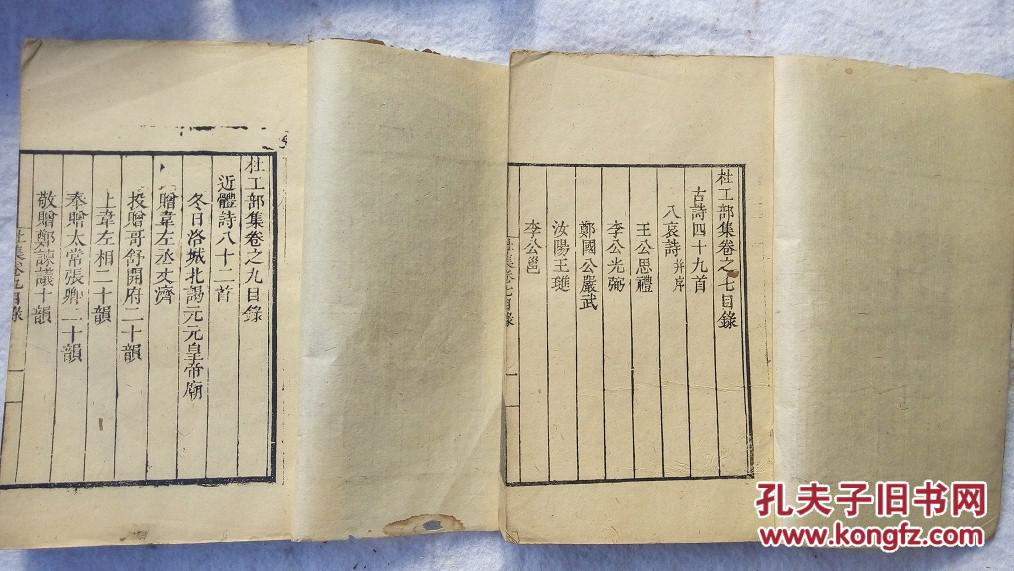 杜工部集卷之七目錄
古詩四十九首
八哀詩并序
王公思禮
李公光弼
鄭國公嚴武
汝陽王璡
李公邕
杜集卷七目錄
杜工部集卷之九目錄
近體詩八十二首
冬日洛城北謁元元皇帝廟
贈韋左丞丈濟
投贈哥舒開府二十韻
上韋左相二十韻
奉贈太常張卿二十韻
敬贈鄭諫議十韻
杜集卷九目錄
孔夫子旧书网
www.kongfz.com